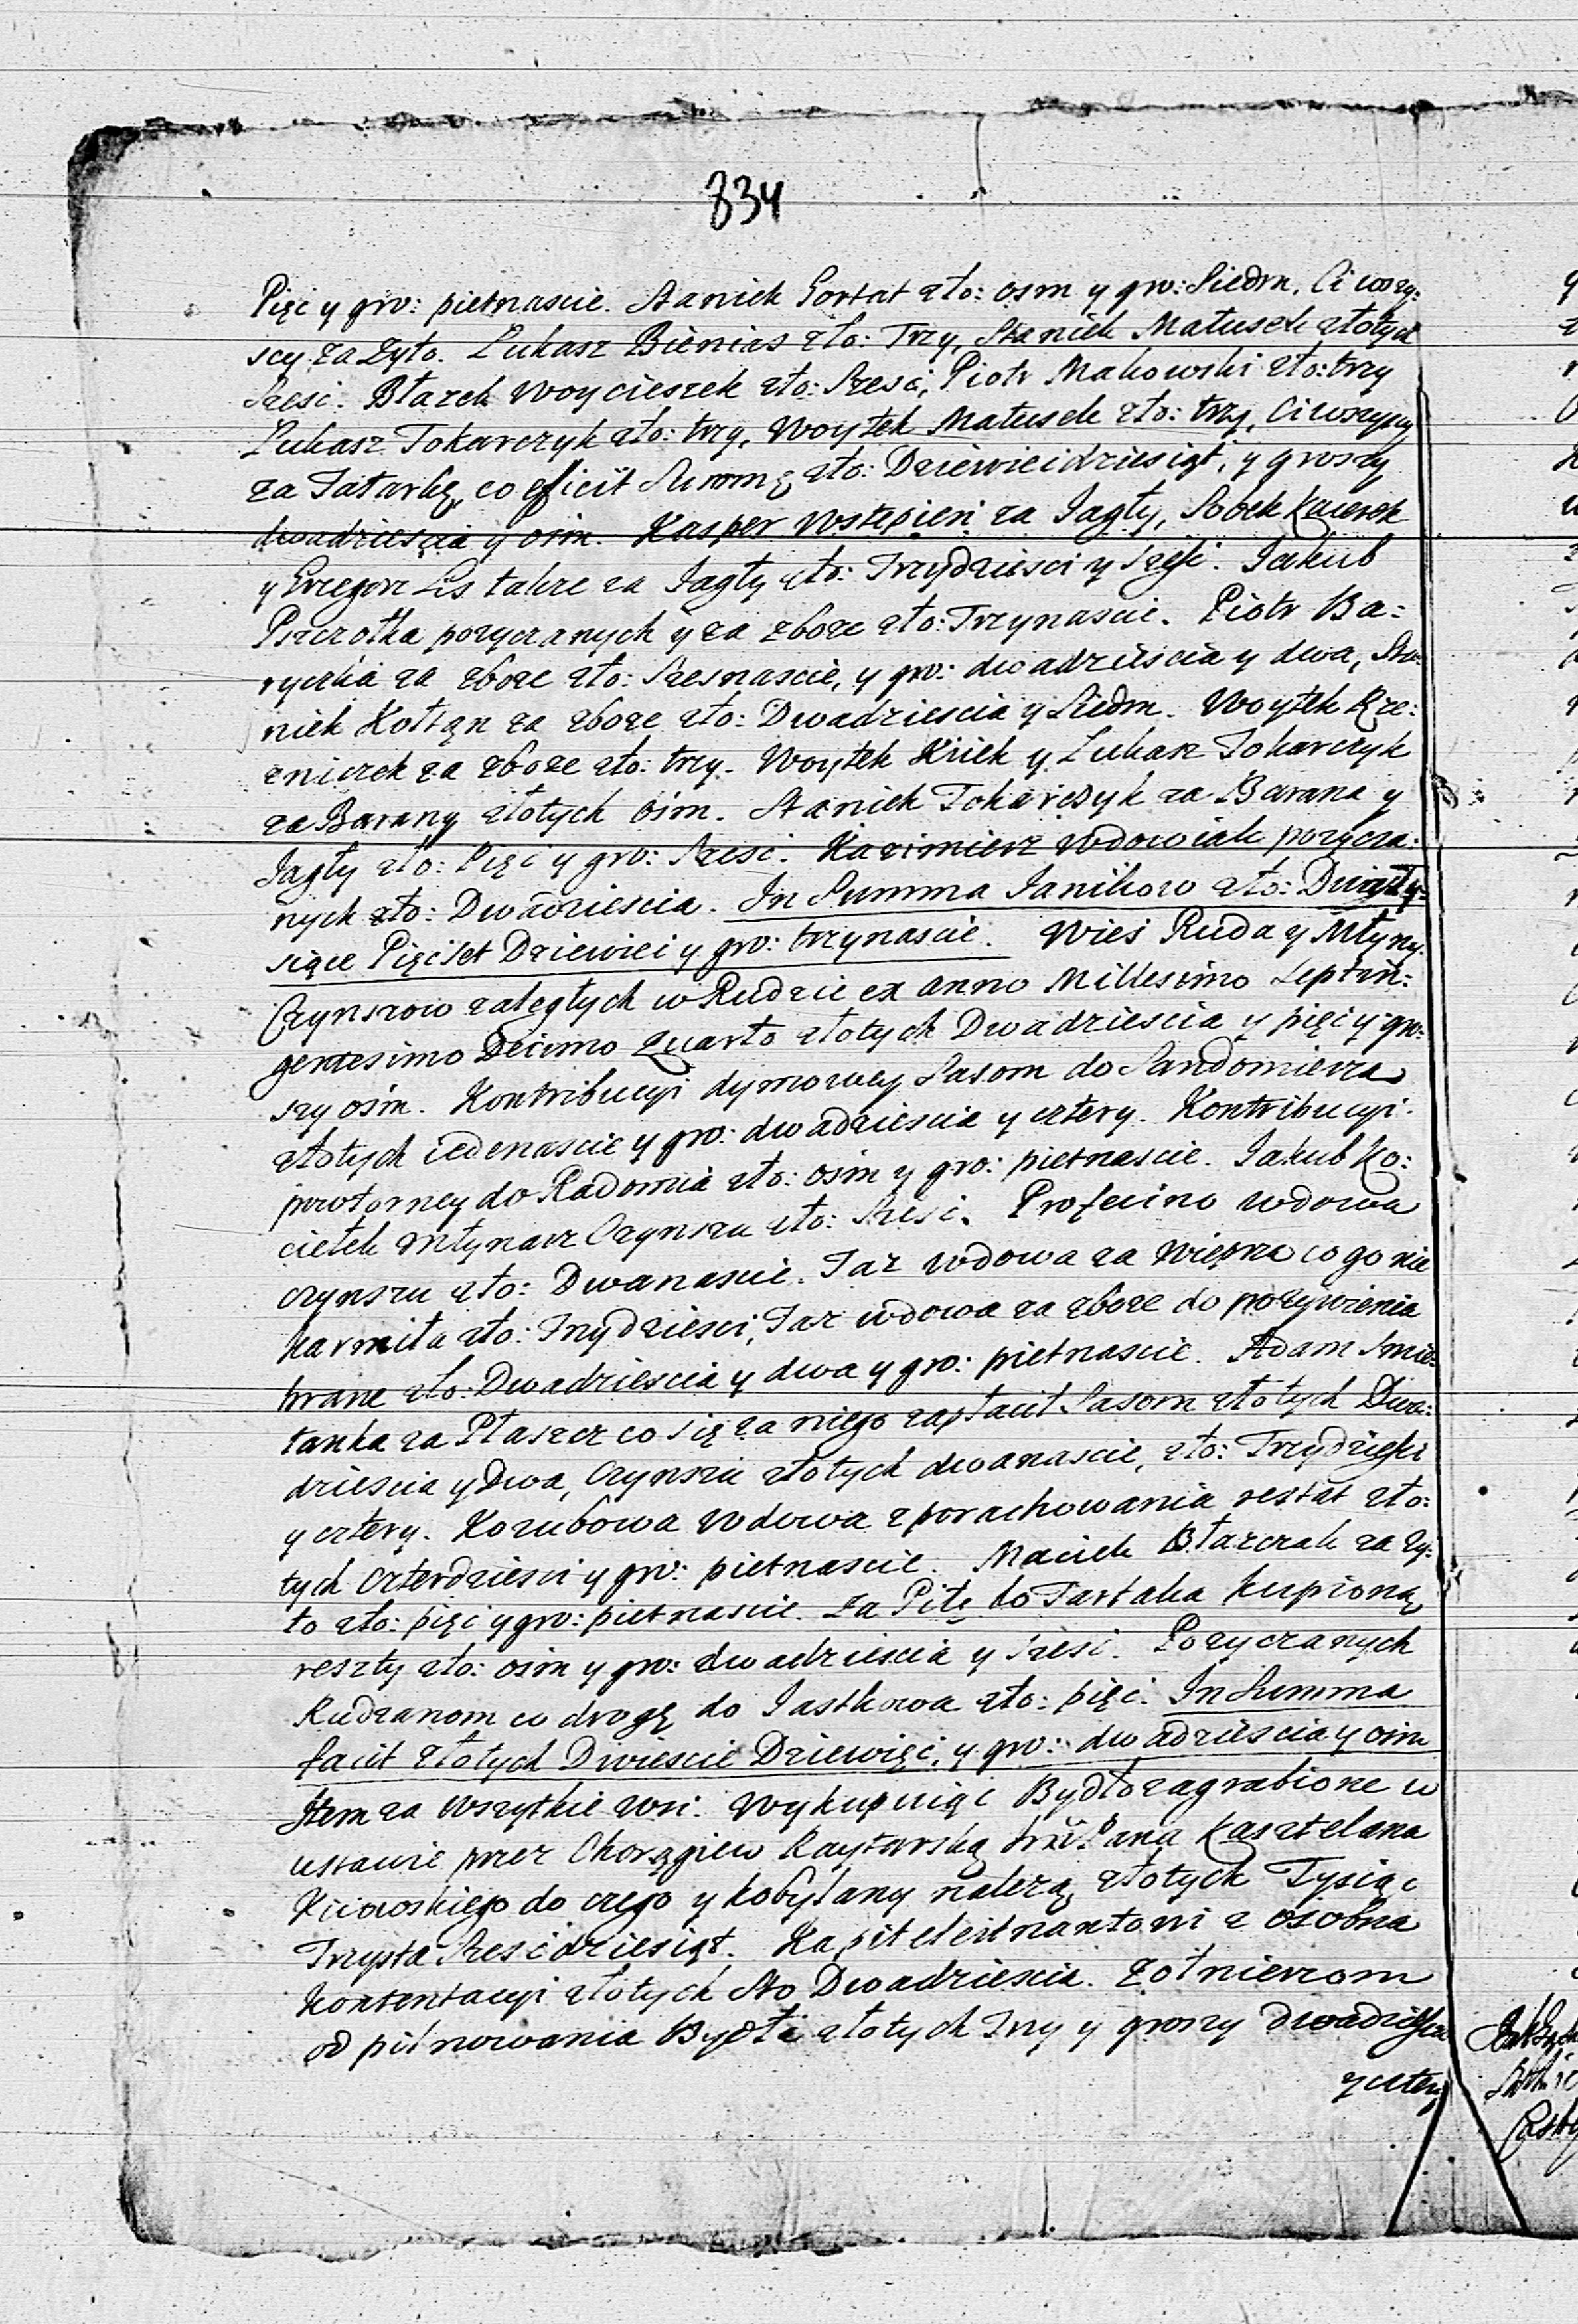 834
Pięć y gro: pietnascie. Staniek Gortat zło: osm y gro: Siedm. Ci wszy:
scy za Zyto. Łukasz Bienias zło: Trzy, Staniek Matusek złotych
Szesć. Błazek Woycieszek zło: Szesć, Piotr Makowski zło: trzy
Łukasz Tokarczyk zło: trzy, Woytek Matusek zło: trzy, Ci wszyscy
za Tatarkę, co efficit Summę zło: Dziewiecidziesiąt, y groszy
dwadziescia y osm. Kasper Wstępień za Jagły, Sobek Kacerek
y Grzegorz Lis takze za Jagły zło: Trzydziesci y szesć. Jakub
Pszczołka pozyczanych y za zboze zło: Trzynascie. Piotr Ba:
rycżka za zboze zło: Szesnascie, y gro: dwadziescia y dwa, Sta:
niek Kołtąn za zboze zło: Dwadziescia y Siedm. Woytek Rze:
zniczek za zboze zło: trzy. Woytek Kriek y Łukasz Tokarczyk
za Barany złotych osm. Staniek Tokarczyk za Barana y
Jagły zło: Pięć y gro: Szesć. Kazimierz Wdowiak pozycza:
nych zło: Dwadziescia. In Summa Janikow zło: Dwa Ty:
siące Pięćset Dziewieć y gro: trzynascie. Wieś Ruda y Młyny.
Czynszow zaległych w Rudzie ex Anno Millesimo Septin:
gentesimo Decimo Quarto złotych Dwadziescia y pięć y gro:
szy osm. Kontribucyi dymowey Sasom do Sandomierza
złotych iedenascie y gro: dwadziescia y cztery. Kontribucyi
powtorney do Radomia zło: osm y gro: pietnascie. Jakub Ko:
ciełek Młynarz Czynszu zło: Szesć. Profecino wdowa
czynszu zło: Dwanascie. Taz wdowa za wieprza co go nie
karmiła zło: Trzydziesci, Taz wdowa za zboze do pozywienia
brane zło: Dwadziescia y dwa y gro: pietnascie. Adam Smie:
tanka za Płaszcz co się za niego zapłacił Sasom złotych Dwa:
dziescia y Dwa, Czynszu złotych dwanascie, zło: Trzydziesci
y cztery. Kozubowa wdowa z porachowania restat zło:
tych czterdziesci y gro: pietnascie. Maciek Błazczak za Zy:
to zło: pięć y gro: pietnascie. Za Piłę do Tartaka kupioną
reszty zło: osm y gro: dwadziescia y szesć. Pozyczanych
Rudzanom co drogę do Jastkowa zło: pięć. In Summa
facit złotych Dwiescie Dziewięć, y gro: dwadziescia y osm
Item za wszytkie wsi. Wykupuiąc Bydło zagrabione w
ustawie przez Chorągiew Raytarską Pana Kasztelana
Kiiowskiego do czego y Kobylany nalezą, złotych Tysiąc
Trzysta Szescdziesiąt. Kapiteleitnantowi z osobna
Kontentacyi złotych Sto Dwadziescia. Zołnierzom
od pilnowania Bydła złotych Trzy y groszy dwadziescia
y cztery